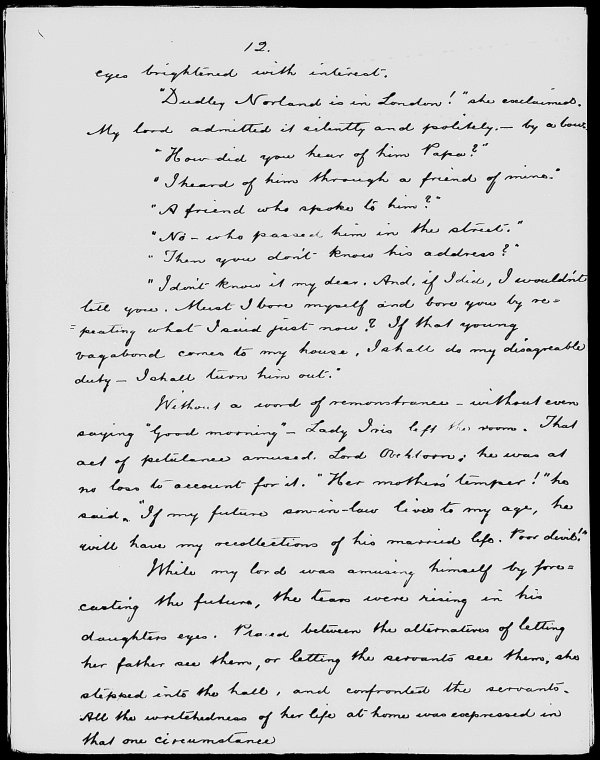 12.
eyes brightened with interest.
"Dudley Norland is in London!" she exclaimed.
My lord admitted it silently and politely. — by a bow.
"How did you hear of him Papa?"
"I heard of him through a friend of mine."
"A friend who spoke to him?"
"No — who passed him in the street."
"Then you don't know his address?"
"I don't know it my dear. And, if I did, I wouldn't
tell you. Must I bore myself and bore you by re=
=peating what I said just now? If that young
vagabond comes to my house, I shall do my disagreable
duty — I shall turn him out."
Without a word of remonstrance — without even
saying "Good morning" — Lady Iris left the room. That
act of petulance amused Lord; he was at
no loss to account for it. "Her mother's temper!" he
said. "If my future son-in-law lives to my age, he
will have my recollections of his married life. Poor devil!"
While my lord was amusing himself by fore=
casting the future, the tears were rising in his
daughters eyes. Placed between the alternatives of letting
her father see them, or letting the servants see them, she
stepped into the hall, and confronted the servants.
All the wretchedness of her life at home was expressed in
that one circumstance